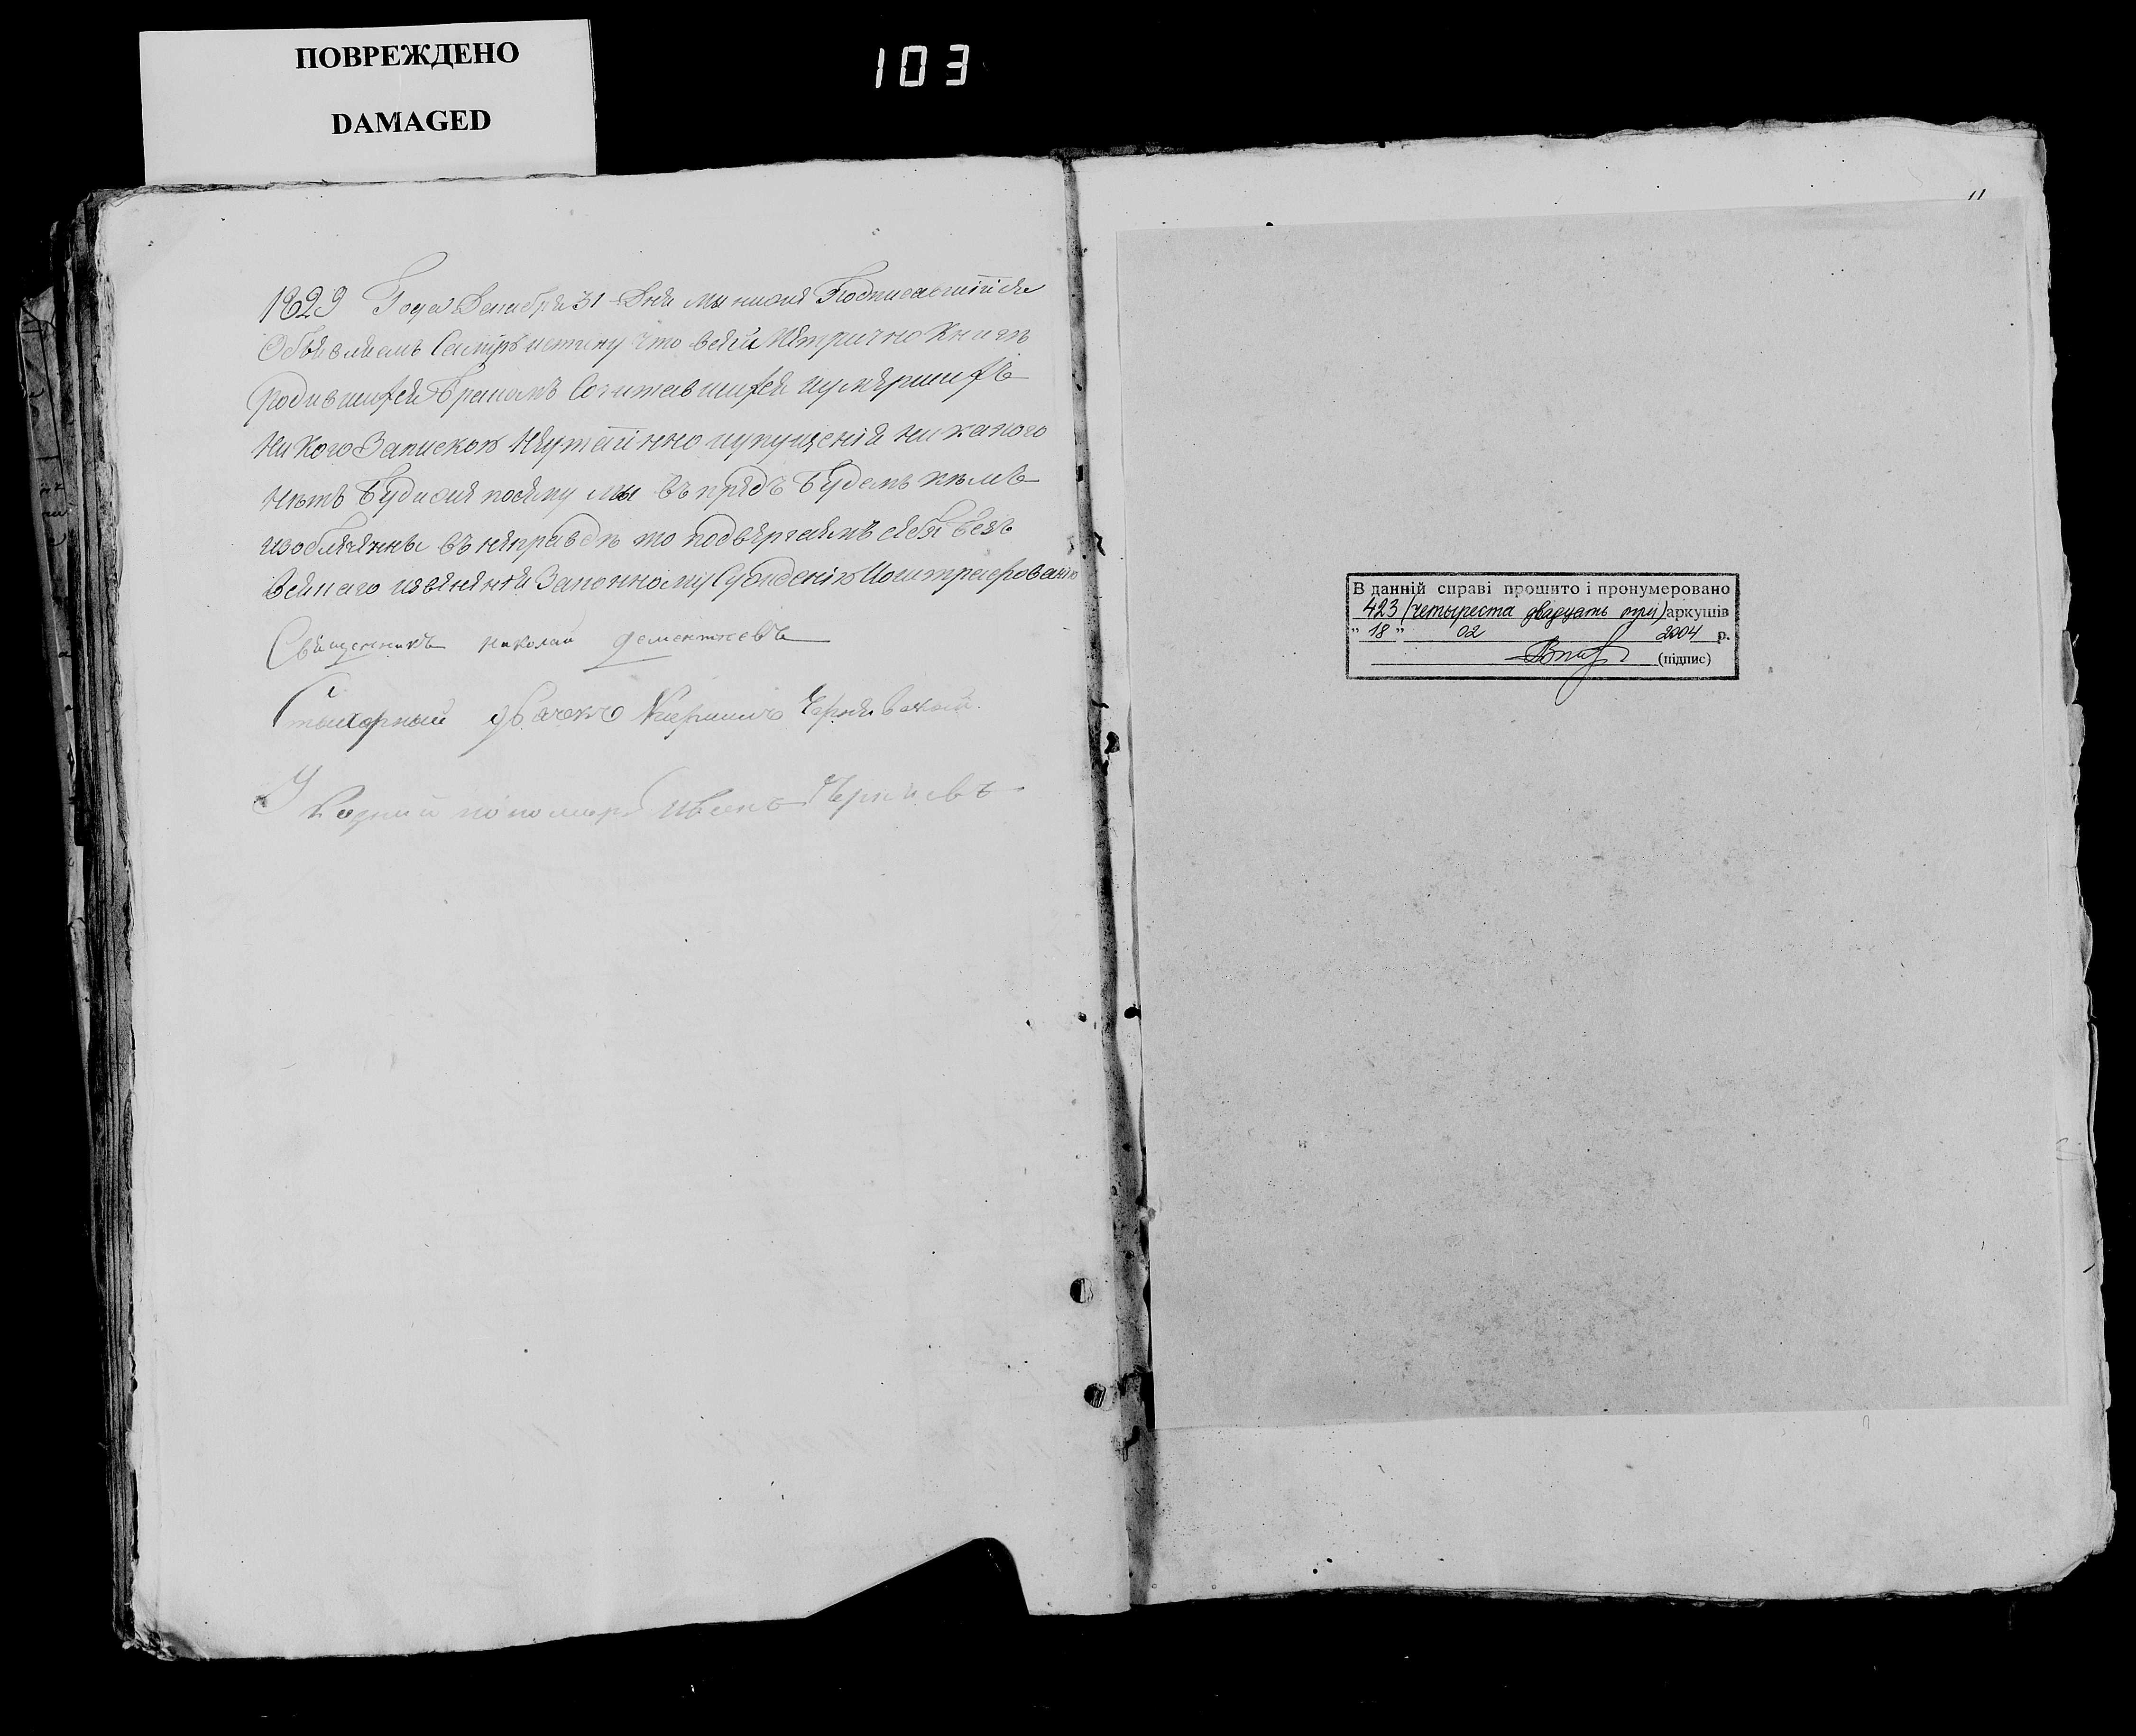 ПОВРЕЖДЕНО
DAMAGED
103
1829 Года Декабря 31 Дня мы ниже Подписавшийся
Объявляемъ Самую истину что всей Метрично Книгѣ
родившихся Бракомъ Сочитавшихся иумершихъ
Никого Запискою Неутаенно иупущенія никакого
Нѣтъ Буди же посему мы въ прядь Будемъ кѣмъ
изобличенны въ неправдѣ то подвергаемъ себя безъ
Всякаго извѣненія Законному Сужденію Иоштрафованію
Священникъ николай дементиевъ
Стихарный дьячекъ Чернявскій
Указний пономарь Иванъ Черняевъ
В данній справі прошито і пронумеровано
423 (четыреста двадцать три) аркушів
" 18 " 02 2004 р.
(підпис)